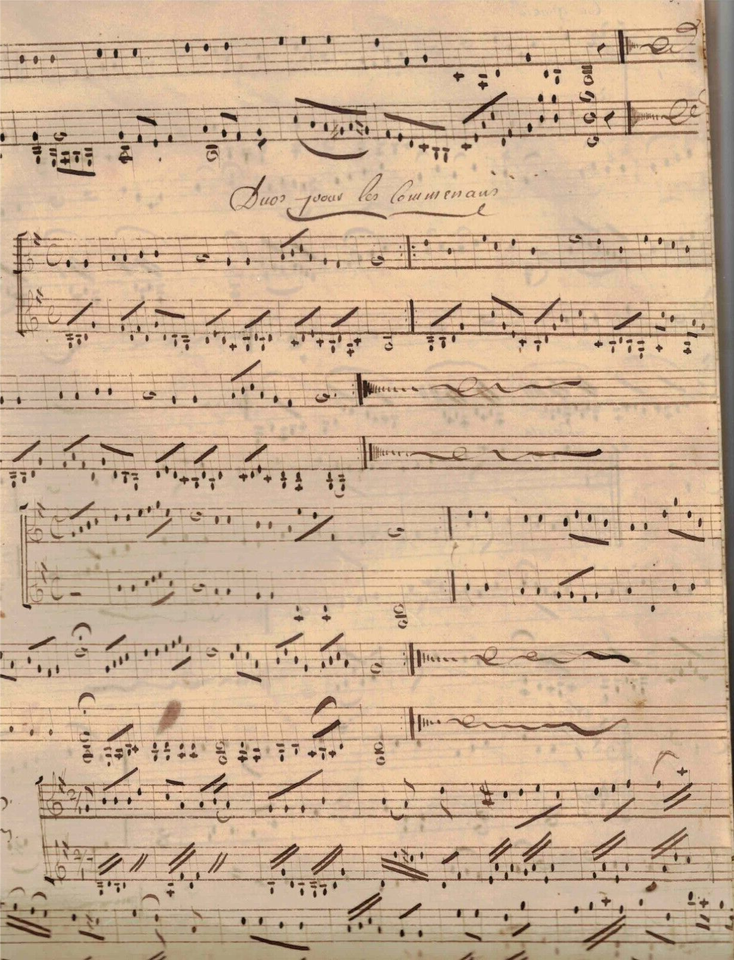 Duos pour les Commenans